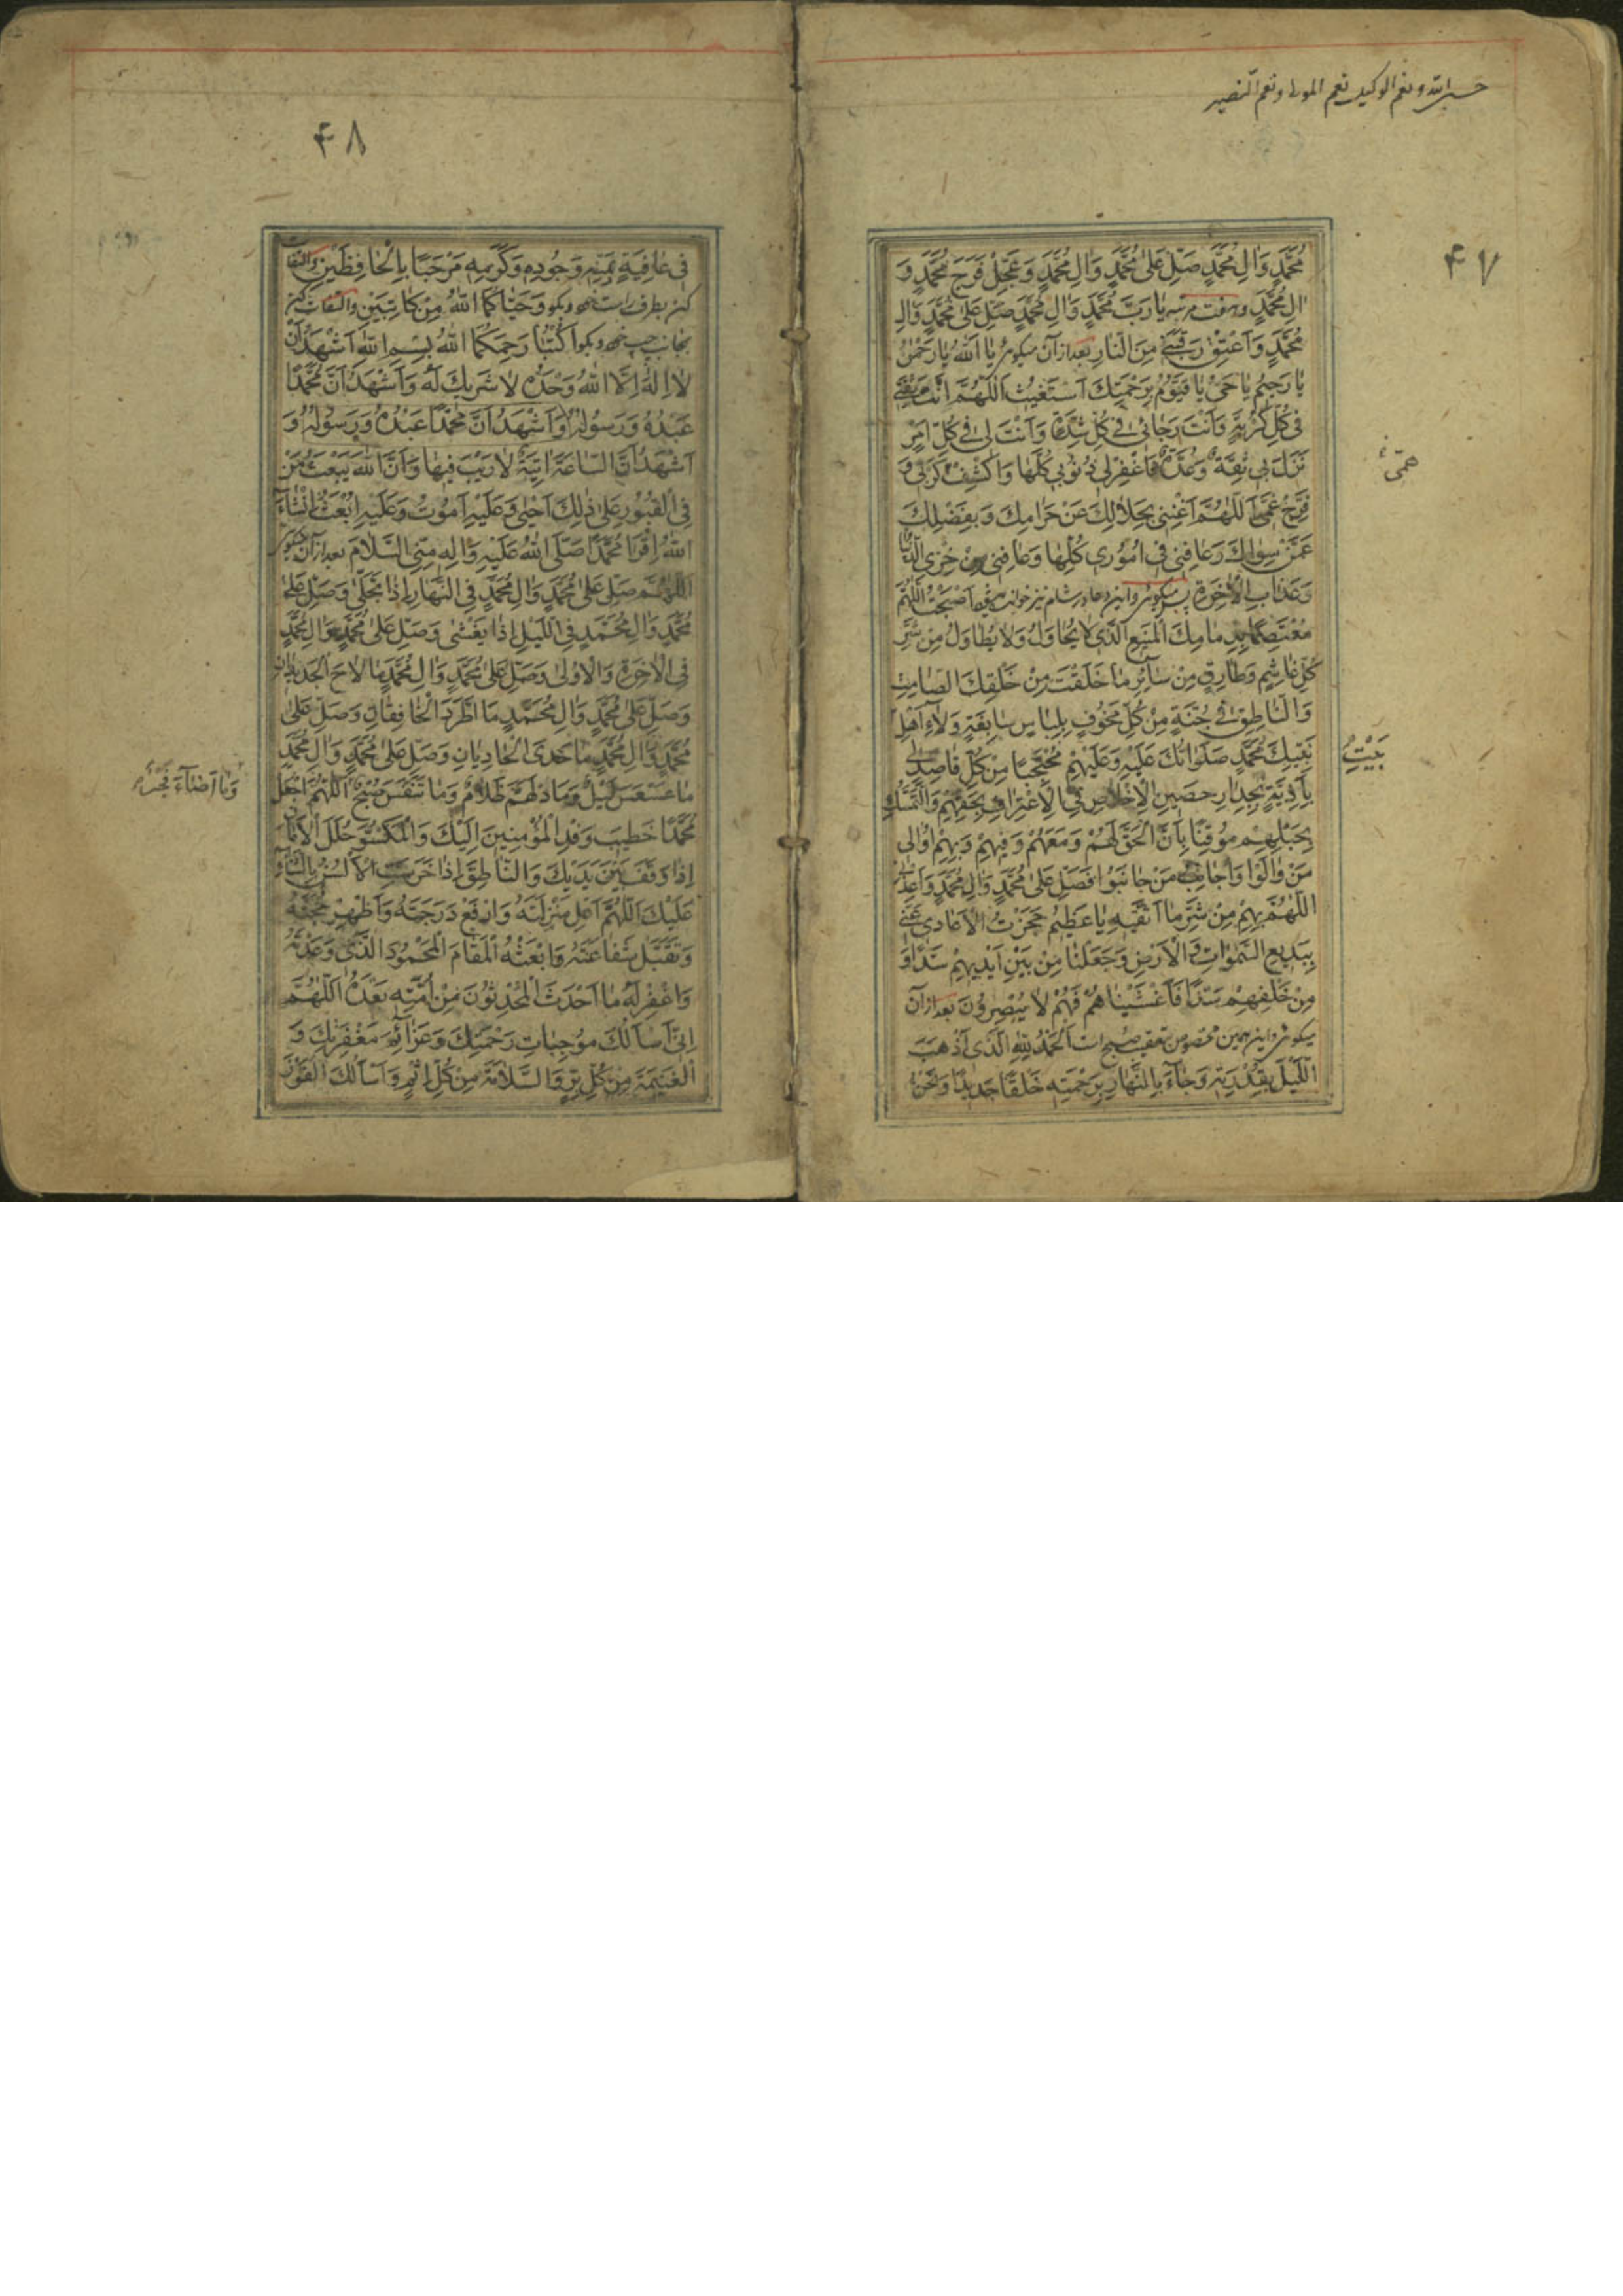 حسبی الله و نعم الوکیل نعم المولی و نعم النصیر
۴۷
مُحَمَّدٍ وَالِ مُحَمَّدٍ صَلِّ عَلیٰ مُحَمَّدٍ وَالِ مُحَمَّدٍ وَعَجِّلْ فَرَجَ مُحَمَّدٍ وَ
الِ مُحَمَّدٍ وهفت مرتبه یٰا رَبَّ مُحَمَّدٍ وَالِ مُحَمَّدٍ صَلِّ عَلیٰ مُحَمَّدٍ وَالِ
مُحَمَّدٍ وَاَعْتِقْ رَقَبَتی مِنَ النّٰارِ بعد ازآن میکوئی یٰا اَللهُ یٰا رَحْمٰنُ
یٰا رَحیمُ یٰا حَیُّ یٰا قَیُّومُ بِرَحْمَتِكَ اَسْتَغیثُ اَللّهُمَّ اَنْتَ ثِقَتی
فی کُلِّ کُرْبَةٍ وَاَنْتَ رَجٰائی فی کُلِّ شِدَّةٍ وَاَنْتَ لی فی کُلِّ اَمْرٍ
نَزَلَ بی ثِقَةٌ وَعُدَّةٌ فَاغْفِرْ لی ذُنُوبی کُلَّهٰا وَاکْشِفْ کَرْبی وَ
همّی
فَرِّجْ غَمّی اَللّهُمَّ اَغْنِنی بِحَلٰالِكَ عَنْ حَرٰامِكَ وَبِفَضْلِكَ
عَمَّنْ سِوٰاكَ وَعٰافِنی فی اُمُوری کُلِّهٰا وَعٰافِنی مِنْ خِزْیِ الدُّنْیٰا
وَعَذٰابِ الْاٰخِرَةِ پس میکوئی واین دعا در شام نیز خوانده میشود اَصْبَحْتُ اللّهُمَّ
مُعْتَصِمًا بِذِمٰامِكَ الْمَنیعِ الَّذی لٰا یُحٰاوَلُ وَلٰا یُطٰاوَلُ مِنْ شَرِّ
کُلِّ غٰاشِمٍ وَطٰارِقٍ مِنْ سٰائِرِ مٰا خَلَقْتَ مِنْ خَلْقِكَ الصّٰامِتِ
وَالنّٰاطِقِ فی جُنَّةٍ مِنْ کُلِّ مَخُوفٍ بِلِبٰاسٍ سٰابِغَةٍ وَلٰاءِ اَهْلِ
بَیْتِ
نَبِیِّكَ مُحَمَّدٍ صَلَوٰاتُكَ عَلَیْهِ وَعَلَیْهِمْ مُحْتَجِبًا مِنْ کُلِّ قٰاصِدٍ لی
بِاَذِیَّةٍ بِجِدٰارٍ حَصینِ الْاِخْلٰاصِ فی الْاِعْتِرٰافِ بِحَقِّهِمْ وَالتَّمَسُّكِ
بِحَبْلِهِمْ مُوقِنًا بِاَنَّ الْحَقَّ لَهُمْ وَمَعَهُمْ وَفیهِمْ وَبِهِمْ اُوٰالی
مَنْ وٰالَوْا وَاُجٰانِبُ مَنْ جٰانَبُوا فَصَلِّ عَلیٰ مُحَمَّدٍ وَالِ مُحَمَّدٍ وَاَعِذْنی
اللّهُمَّ بِهِمْ مِنْ شَرِّ مٰا اَتَّقیهِ یٰا عَظیمُ حَجَزْتُ الْاَعٰادی عَنّی
بِبَدیعِ السَّمٰوٰاتِ وَالْاَرْضِ وَجَعَلْنٰا مِنْ بَیْنِ اَیْدیهِمْ سَدًّا وَ
مِنْ خَلْفِهِمْ سَدًّا فَاَغْشَیْنٰاهُمْ فَهُمْ لٰا یُبْصِرُونَ بعد ازآن
میکوئی و این همین مخصوص تعقیب صبح است اَلْحَمْدُ لِلّٰهِ الَّذی اَذْهَبَ
اللَّیْلَ بِقُدْرَتِهِ وَجٰاءَ بِالنَّهٰارِ بِرَحْمَتِهِ خَلْقًا جَدیدًا وَنَحْنُ
۴۸
فی عٰافِیَةٍ بِمَنِّهِ وَجُودِهِ وَکَرَمِهِ مَرْحَبًا بِالْحٰافِظَیْنِ والتفات
کن بطرف راست خود وبکو وَحَیّٰاکُمَا اللهُ مِنْ کٰاتِبَیْنِ والتفات کن
بجانب چپ خود وبکو اُکْتُبٰا رَحِمَکُمَا اللهُ بِسْمِ اللهِ اَشْهَدُ اَنْ
لٰا اِلٰهَ اِلَّا اللهُ وَحْدَهُ لٰا شَریكَ لَهُ وَاَشْهَدُ اَنَّ مُحَمَّدًا
عَبْدُهُ وَرَسُولُهُ وَاَشْهَدُ اَنَّ مُحَمَّدًا عَبْدُهُ وَرَسُولُهُ وَ
اَشْهَدُ اَنَّ السّٰاعَةَ اٰتِیَةٌ لٰا رَیْبَ فیهٰا وَاَنَّ اللهَ یَبْعَثُ مَنْ
فِی الْقُبُورِ عَلیٰ ذٰلِكَ اَحْییٰ وَعَلَیْهِ اَمُوتُ وَعَلَیْهِ اُبْعَثُ اِنْشٰاءَ
اللهُ اِقْرَاٰ مُحَمَّدًا صَلَّی اللهُ عَلَیْهِ وَاٰلِهِ مِنِّی السَّلٰامَ بعد ازآن میکوئی
اَللّهُمَّ صَلِّ عَلیٰ مُحَمَّدٍ وَالِ مُحَمَّدٍ فِی النَّهٰارِ اِذٰا تَجَلّیٰ وَصَلِّ عَلیٰ
مُحَمَّدٍ وَالِ مُحَمَّدٍ فِی اللَّیْلِ اِذٰا یَغْشیٰ وَصَلِّ عَلیٰ مُحَمَّدٍ وَالِ مُحَمَّدٍ
فِی الْاٰخِرَةِ وَالْاُولیٰ وَصَلِّ عَلیٰ مُحَمَّدٍ وَالِ مُحَمَّدٍ مٰا لٰاحَ الْجَدیدٰانِ
وَصَلِّ عَلیٰ مُحَمَّدٍ وَالِ مُحَمَّدٍ مَا اطَّرَدَ الْخٰافِقٰانِ وَصَلِّ عَلیٰ
مُحَمَّدٍ وَالِ مُحَمَّدٍ مٰا حَدَی الْحٰادِیٰانِ وَصَلِّ عَلیٰ مُحَمَّدٍ وَالِ مُحَمَّدٍ
مٰا عَسْعَسَ لَیْلٌ وَمَا ادْلَهَمَّ ظَلٰامٌ وَمٰا تَنَفَّسَ صُبْحٌ اَللّهُمَّ اجْعَلْ
وَمٰا اَضٰاءَ فَجْرٌ
مُحَمَّدًا خَطیبَ وَفْدِ الْمُؤْمِنینَ اِلَیْكَ وَالْمَکْسُوَّ حُلَلَ الْاَمٰانِ
اِذٰا وَقَفَ بَیْنَ یَدَیْكَ وَالنّٰاطِقَ اِذٰا خَرَسَتِ الْاَلْسُنُ بِالثَّنٰاءِ
عَلَیْكَ اَللّهُمَّ اَعْلِ مَنْزِلَتَهُ وَارْفَعْ دَرَجَتَهُ وَاَظْهِرْ حُجَّتَهُ
وَتَقَبَّلْ شَفٰاعَتَهُ وَابْعَثْهُ الْمَقٰامَ الْمَحْمُودَ الَّذی وَعَدْتَهُ
وَاغْفِرْ لَهُ مٰا اَحْدَثَ الْمُحْدِثُونَ مِنْ اُمَّتِهِ بَعْدَهُ اَللّهُمَّ
اِنّی اَسْاَلُكَ مُوجِبٰاتِ رَحْمَتِكَ وَعَزٰائِمَ مَغْفِرَتِكَ وَ
الْغَنیمَةَ مِنْ کُلِّ بِرٍّ وَالسَّلٰامَةَ مِنْ کُلِّ اِثْمٍ وَاَسْاَلُكَ الْفَوْزَ